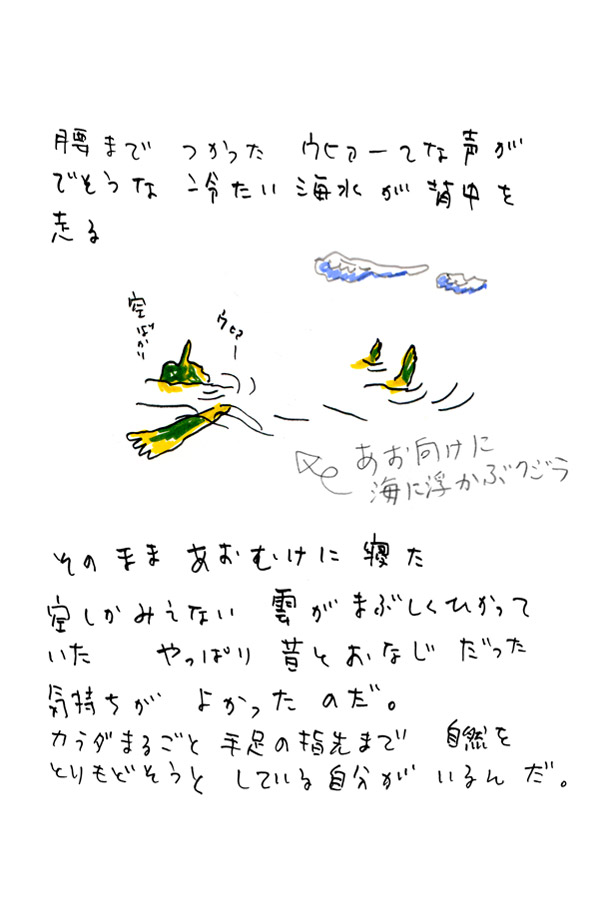 腰まで つかった ウヒァーてな声が
でそうな 冷たい 海水が 背中を
走る
空ばかり
ウヒァー
あお向けに
海に浮かぶクジラ
そのまま あおむけに 寝た
空しかみえない 雲がまぶしくひかって
いた やっぱり 昔とおなじ だった
気持ちが よかった のだ。
カラダまるごと 手足の指先まで 自然を
とりもどそうと している自分が いるんだ。